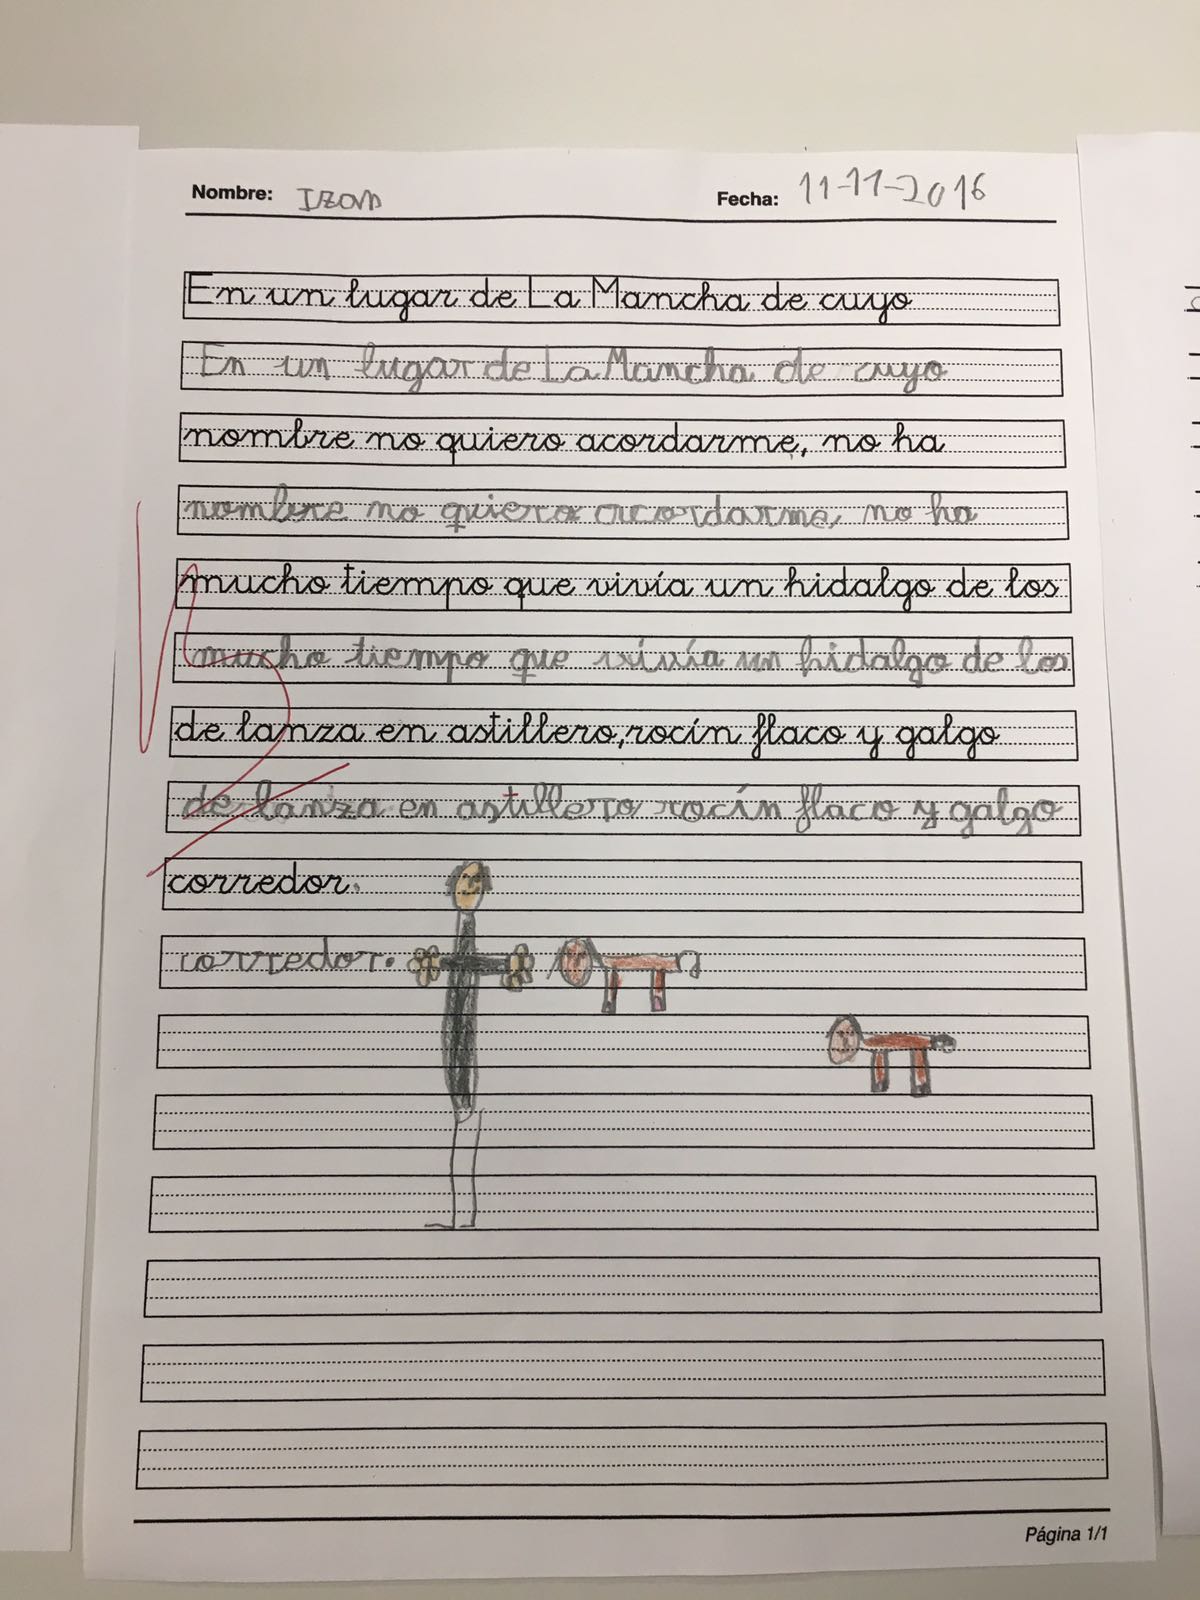 Nombre: IZAN Fecha: 11-11-2016
En un lugar de La Mancha de cuyo
En un lugar de La Mancha de cuyo
nombre no quiero acordarme, no ha
nombre no quiero acordarme, no ha
mucho tiempo que vivía un hidalgo de los
mucho tiempo que vivía un hidalgo de los
de lanza en astillero, rocín flaco y galgo
de lanza en astillero rocín flaco y galgo
corredor.
corredor.
Página 1/1